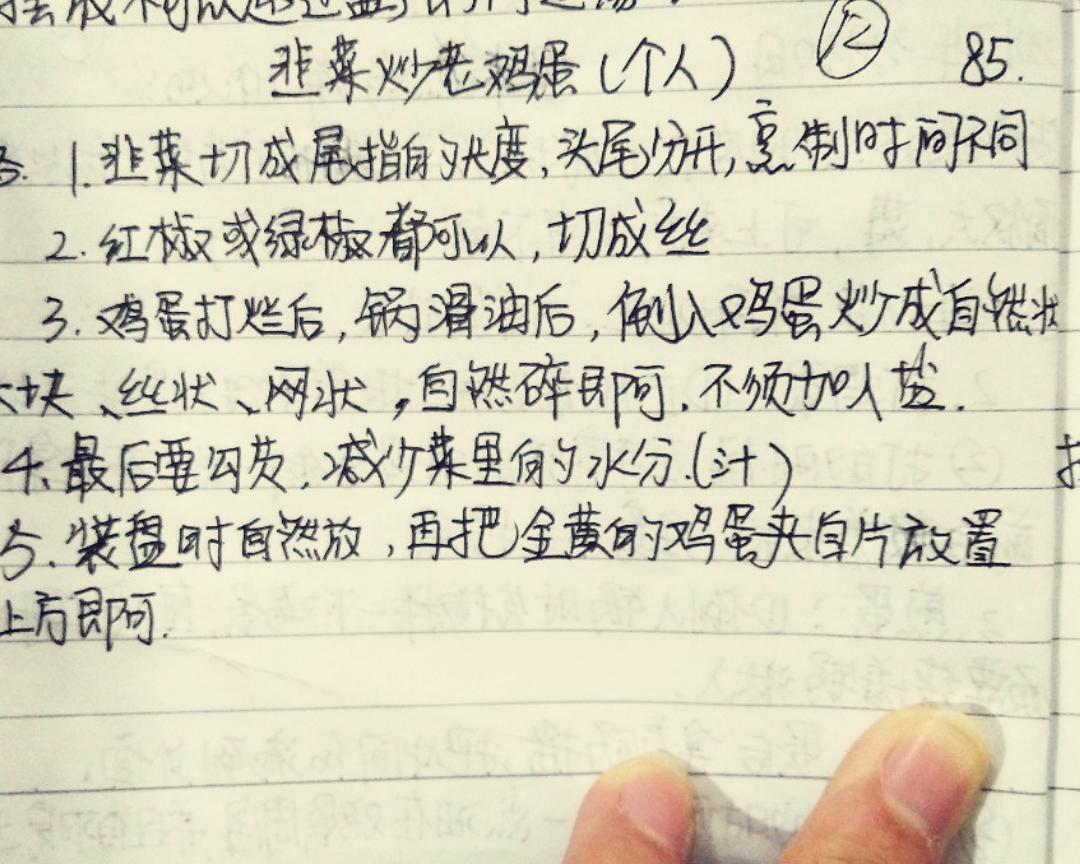 韭菜炒老鸡蛋(个人) ⑫ 85.
1. 韭菜切成尾指的长度,头尾分开,烹制时间不同
2. 红椒或绿椒都可以,切成丝
3. 鸡蛋打烂后,锅滑油后,倒入鸡蛋炒成自然状
大块、丝状、网状,自然碎即可.不须加入盐.
4. 最后要勾芡.减少菜里的水分.(汁)
5. 装盘时自然放,再把金黄的鸡蛋夹自片放置
上方即可.